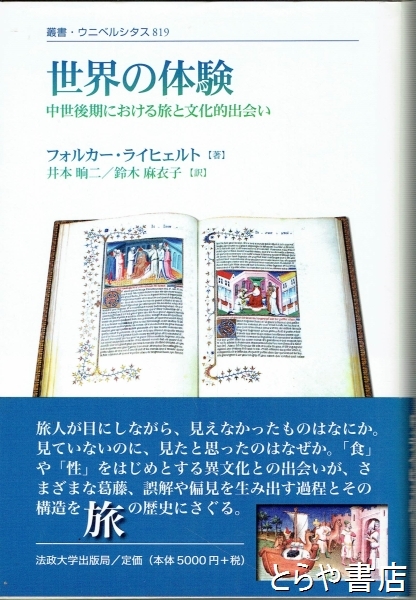 叢書・ウニベルシタス 819
世界の体験
中世後期における旅と文化的出会い
フォルカー・ライヒェルト【著】
井本 晌二／鈴木 麻衣子【訳】
旅人が目にしながら、見えなかったものはなにか。
見ていないのに、見たと思ったのはなぜか。「食」
や「性」をはじめとする異文化との出会いが、さ
まざまな葛藤、誤解や偏見を生み出す過程とその
構造を旅の歴史にさぐる。
法政大学出版局／定価（本体5000円＋税）
とらや書店